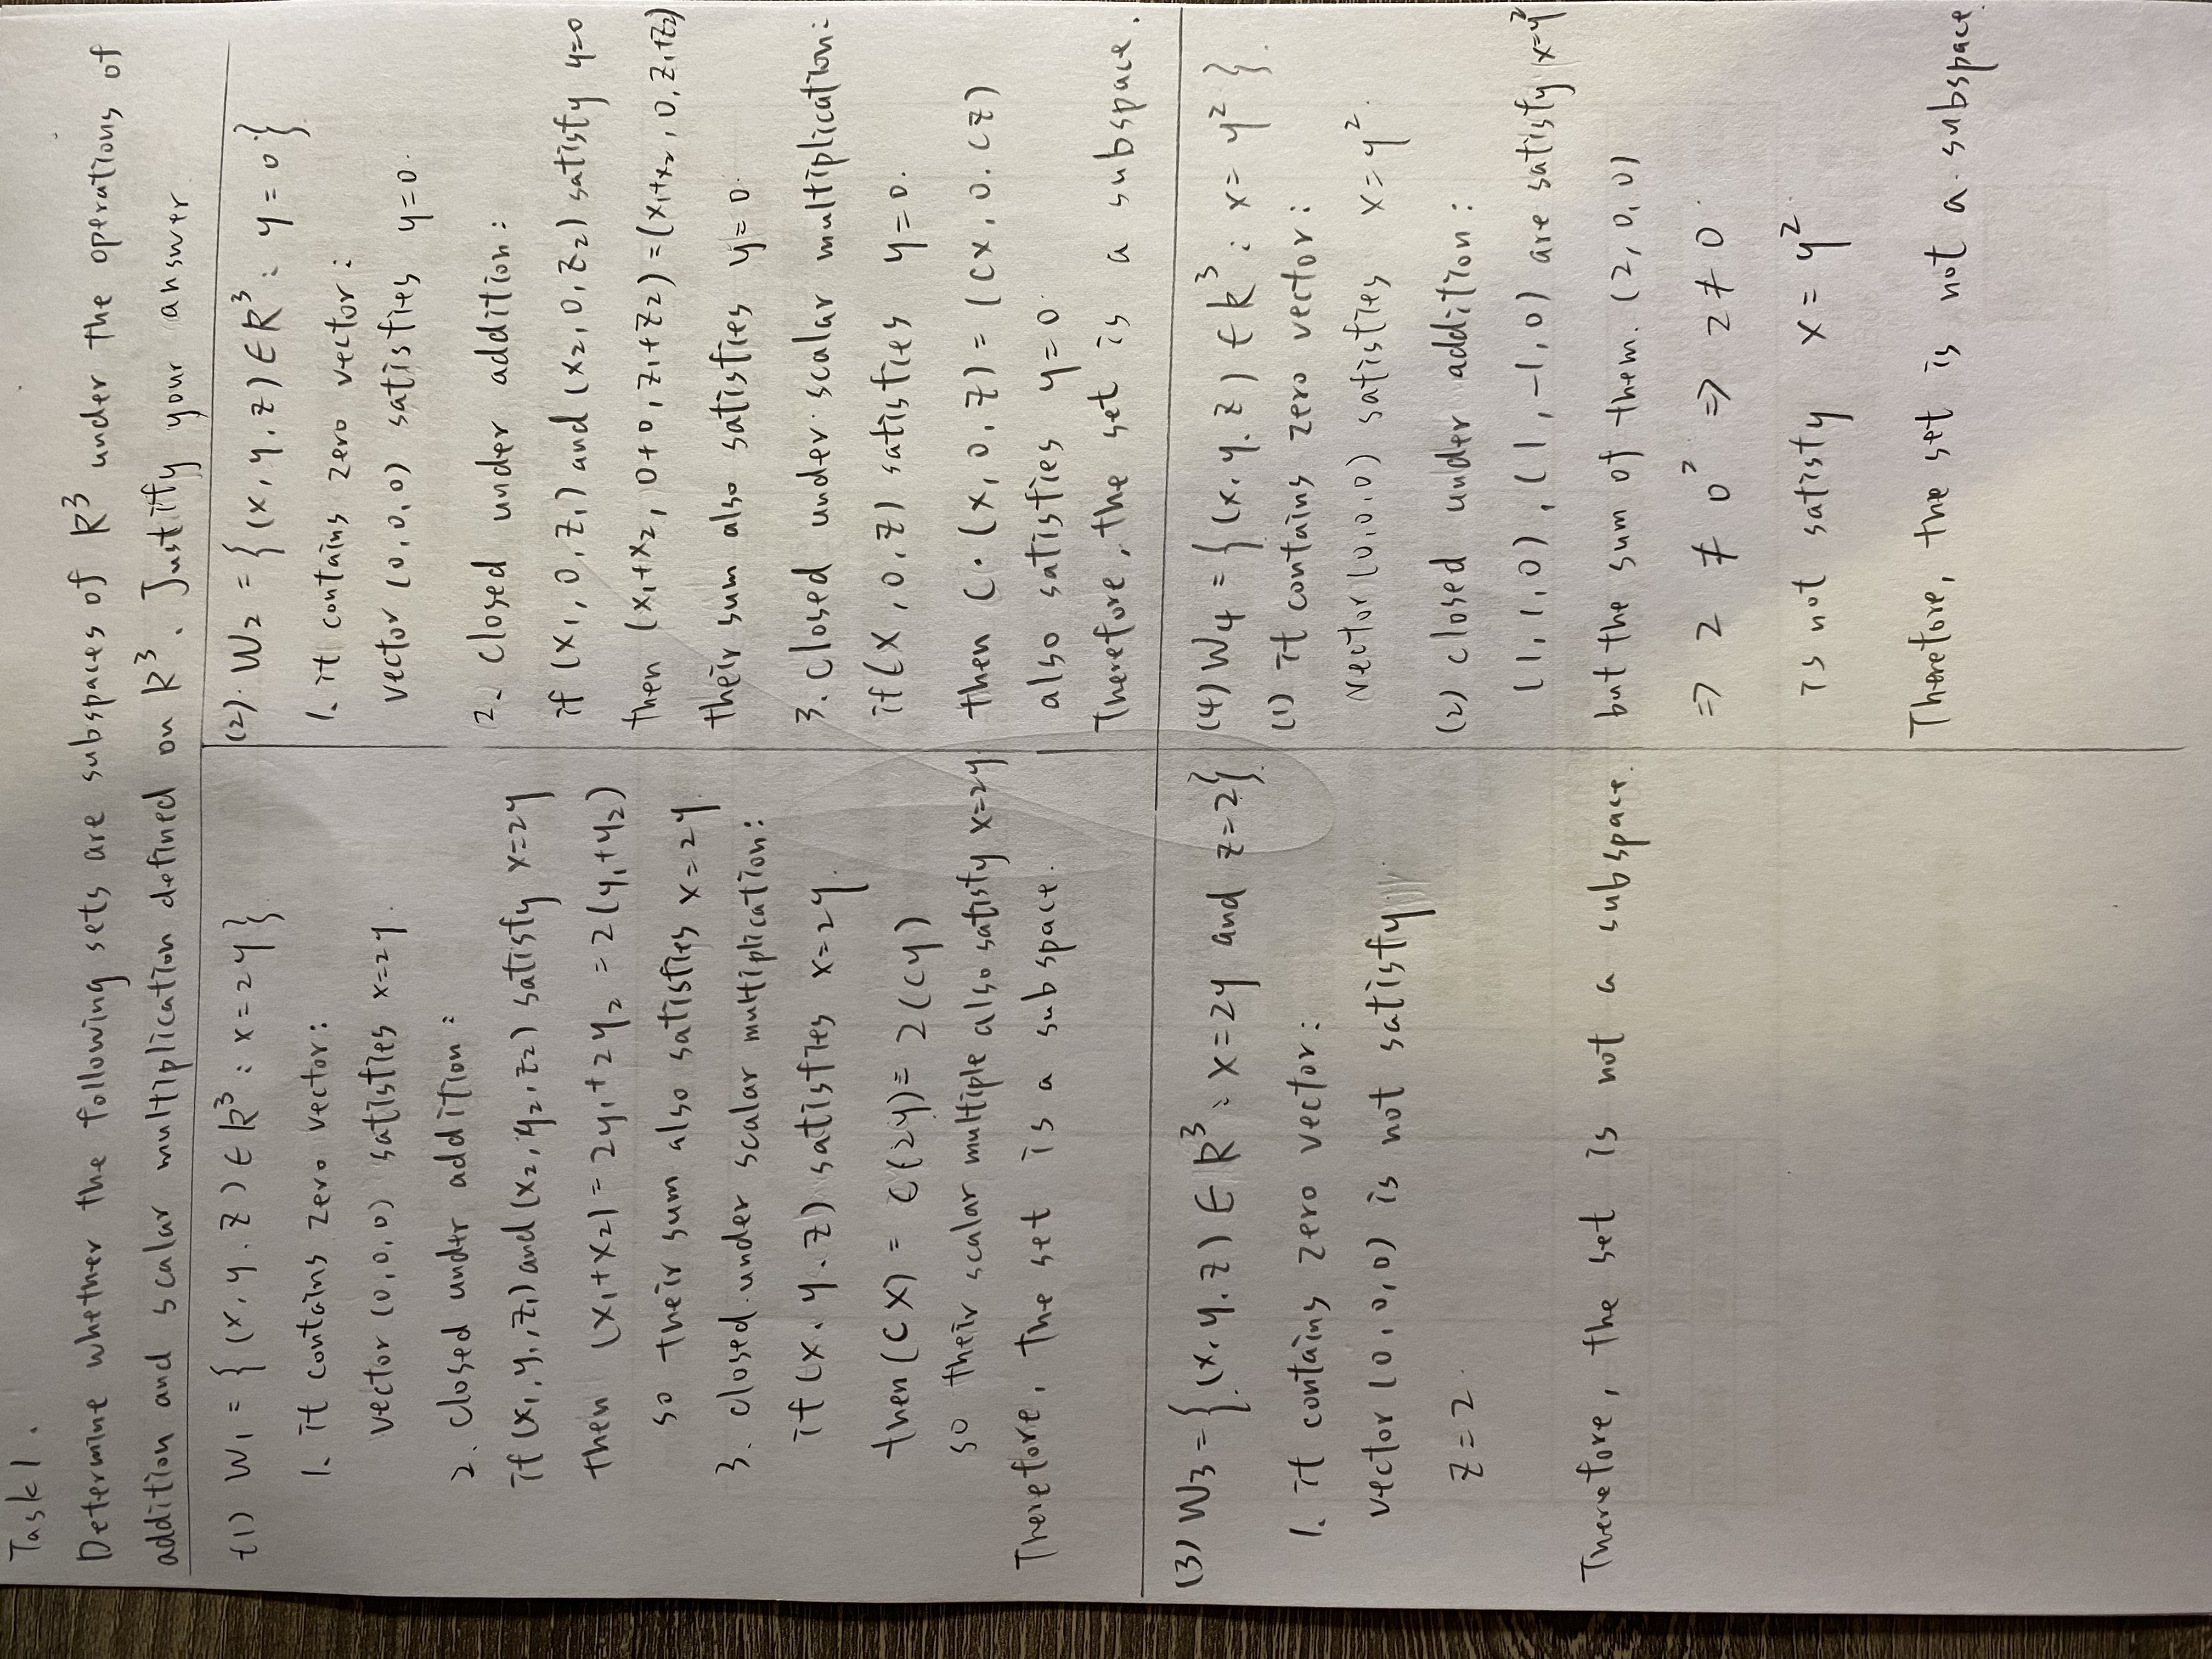 Task 1.
Determine whether the following sets are subspaces of R³ under the operations of
addition and scalar multiplication defined on R³. Justify your answer
(1) W₁ = { (x, y. z) ∈ R³ : x = 2y }
1. it contains zero vector:
vector (0,0,0) satisfies x=2y.
2. closed under addition:
if (x₁, y₁, z₁) and (x₂, y₂, z₂) satisfy x=2y
then (x₁+x₂) = 2y₁+2y₂ = 2(y₁+y₂)
so their sum also satisfies x=2y
3. closed under scalar multiplication:
if (x. y. z) satisfies x=2y.
then (cx) = c(2y) = 2(cy)
so their scalar multiple also satisfy x=2y
Therefore, the set is a subspace.
(2). W₂ = { (x, y, z) ∈ R³ : y = 0 }
1. it contains zero vector:
vector (0,0,0) satisfies y=0.
2. closed under addition:
if (x₁, 0, z₁) and (x₂, 0, z₂) satisfy y=0
then (x₁+x₂, 0+0, z₁+z₂) = (x₁+x₂, 0, z₁+z₂)
their sum also satisfies y=0.
3. closed under scalar multiplication:
if (x, 0, z) satisfies y=0.
then c·(x, 0, z) = (cx, 0. cz)
also satisfies y=0.
Therefore, the set is a subspace.
(3) W₃ = { (x. y. z) ∈ R³ : x=2y and z=2 }
1. it contains zero vector:
vector (0,0,0) is not satisfy
z=2.
Therefore, the set is not a subspace.
(4) W₄ = { (x. y. z) ∈ R³ : x= y² }.
(1) it contains zero vector:
vector (0,0,0) satisfies x=y².
(2) closed under addition:
(1, 1, 0), (1, -1, 0) are satisfy x=y²
but the sum of them. (2, 0, 0)
⇒ 2 ≠ 0² ⇒ 2 ≠ 0.
is not satisfy x = y².
Therefore, the set is not a subspace.